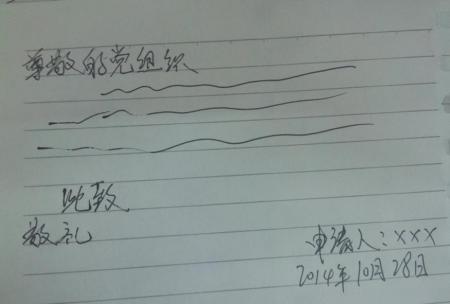 尊敬的党组织
此致
敬礼
申请人：×××
2014年10月28日